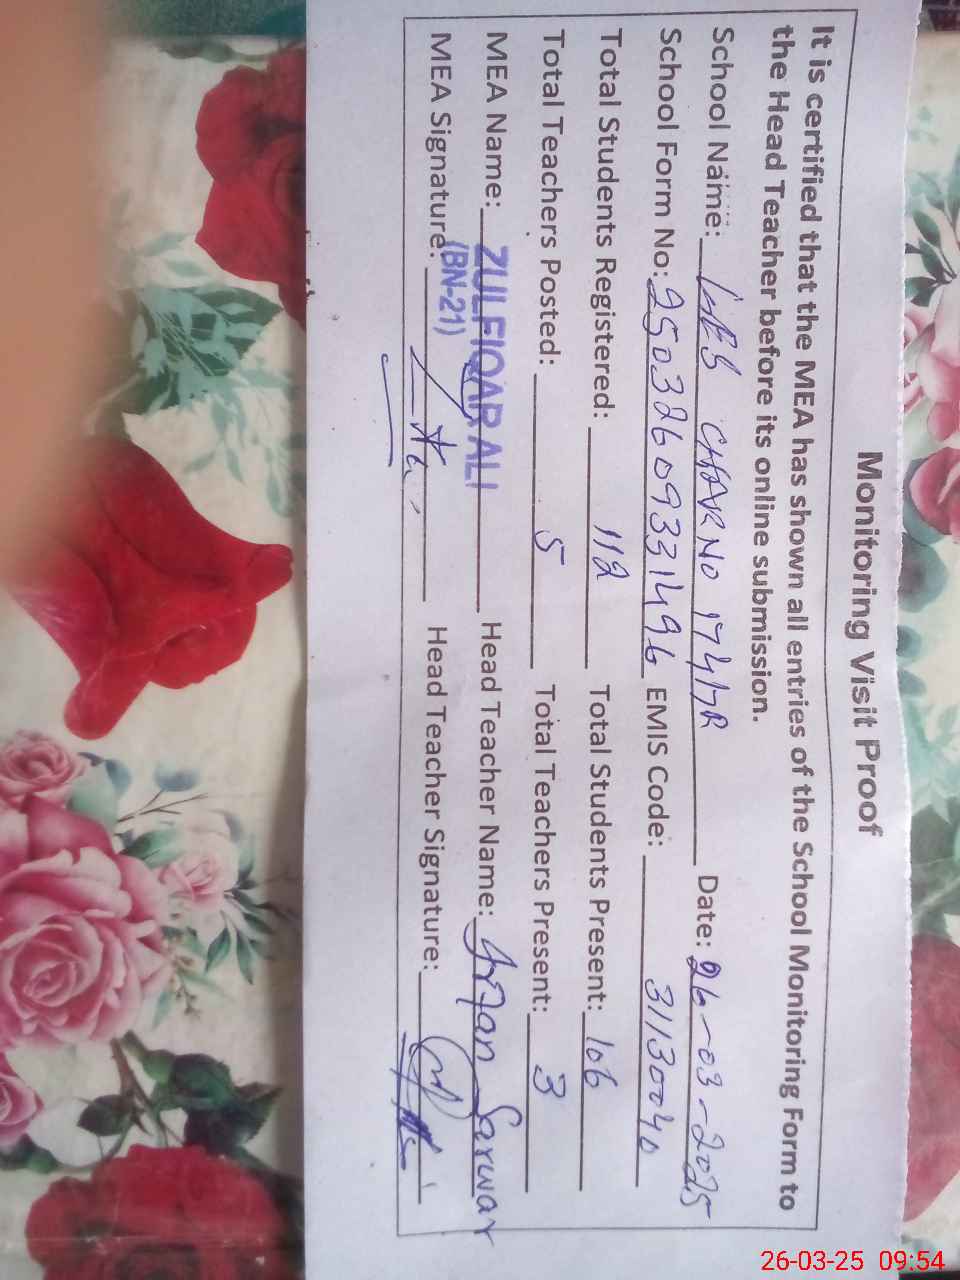 Monitoring Visit Proof
It is certified that the MEA has shown all entries of the School Monitoring Form to
the Head Teacher before its online submission.
School Name: GES CHAK NO 174/7R Date: 26-03-2025
School Form No: 25032609331496 EMIS Code: 31130040
Total Students Registered: 112 Total Students Present: 106
Total Teachers Posted: 5 Total Teachers Present: 3
MEA Name: ZULFIQAR ALI Head Teacher Name: Irfan Sarwar
(BN-21)
MEA Signature: Head Teacher Signature:
26-03-25 09:54